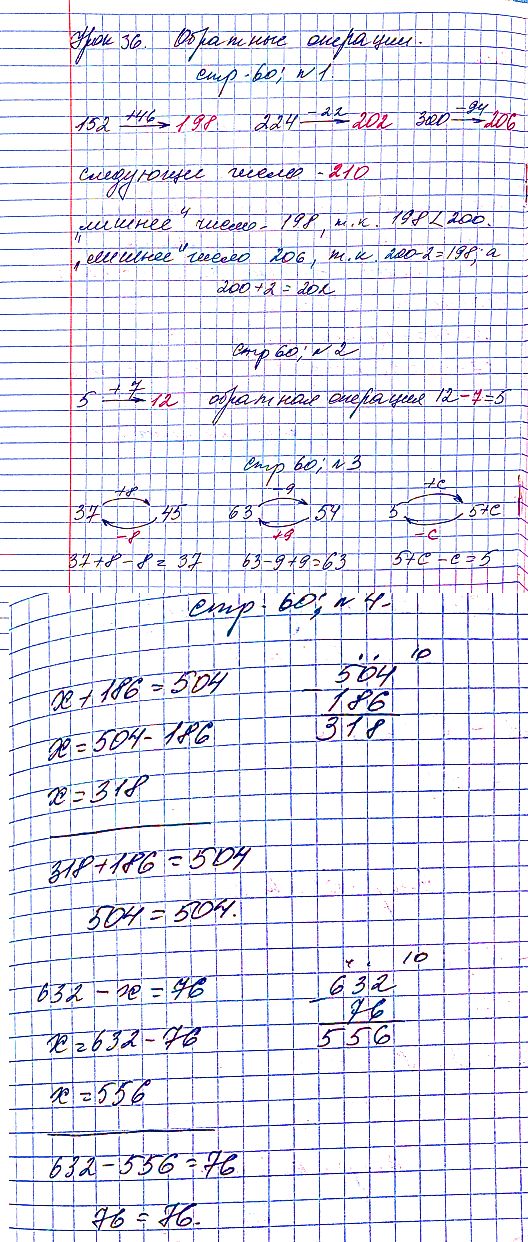 Урок 36. Обратные операции.
стр. 60; №1
152 +46 → 198 224 −22 → 202 300 −94 → 206
следующее число - 210
"лишнее" число - 198, т.к. 198 < 200.
"лишнее" число 206, т.к. 200-2=198; а
200+2=202
стр 60; №2
5 +7 → 12 обратная операция 12-7=5
стр 60; №3
+8 −9 +c
37 45 63 54 5 5+c
−8 +9 −c
37+8-8=37 63-9+9=63 5+c-c=5
стр. 60; №4.
x+186=504
x=504-186
x=318
318+186=504
504=504.
10
504
- 186
318
632-x=76
x=632-76
x=556
632-556=76
76=76.
10
632
- 76
556